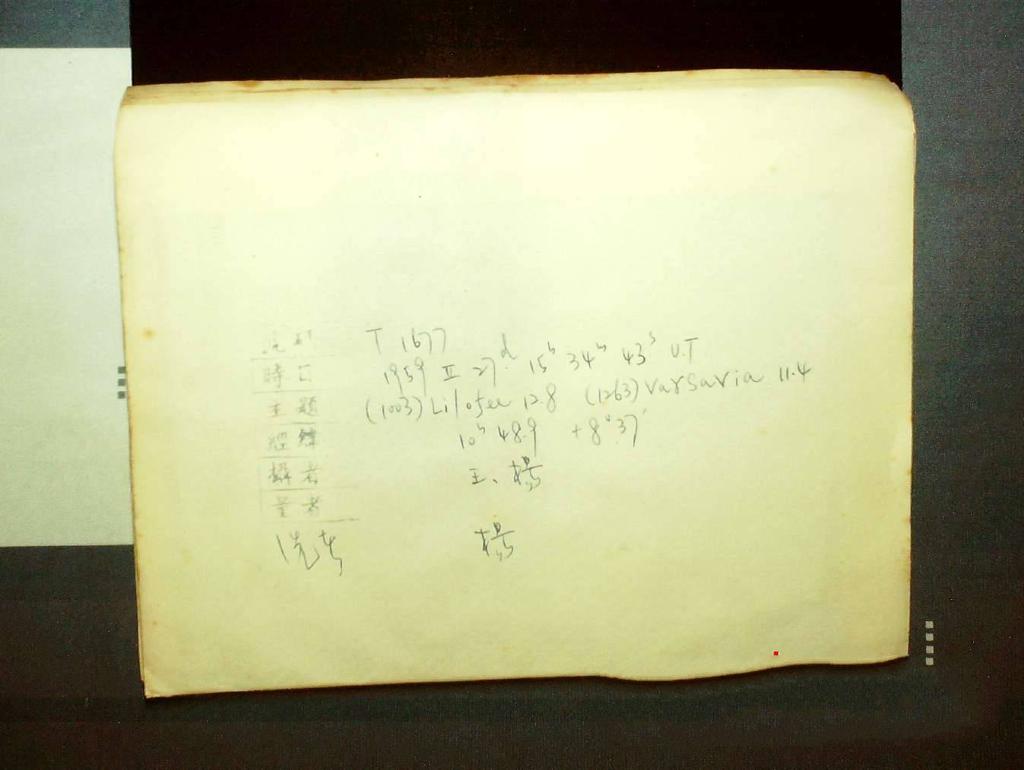 T 1677
時日 1959 II 27ᵈ. 15ʰ 34ᵐ 43ˢ U.T
主題 (1003) Lilofee 12.8 (1263) Varsavia 11.4
經緯 10ʰ 48.9 +8°37′
攝者 王、楊
量者
洗者 楊